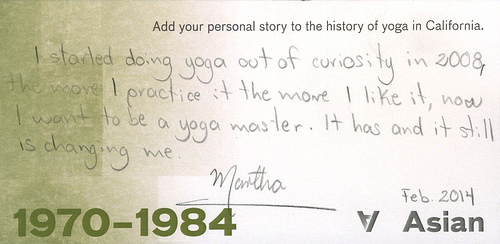 Add your personal story to the history of yoga in California.
I started doing yoga out of curiosity in 2008,
the more I practice it the more I like it, now
I want to be a yoga master. It has and it still
is changing me.
Martha
Feb. 2014
1970–1984
Asian